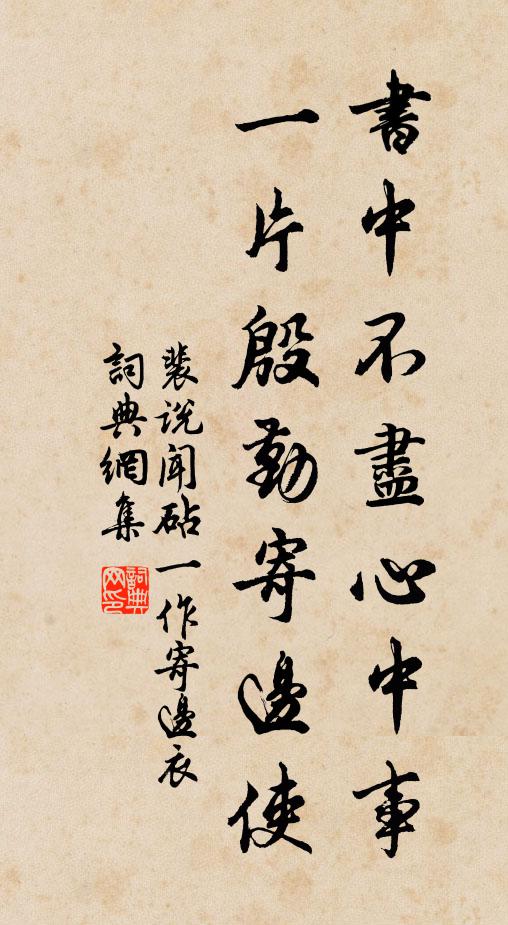 書中不盡心中事
一片殷勤寄邊使
裴説聞砧一作寄邊衣
詞典網集
詞典网印